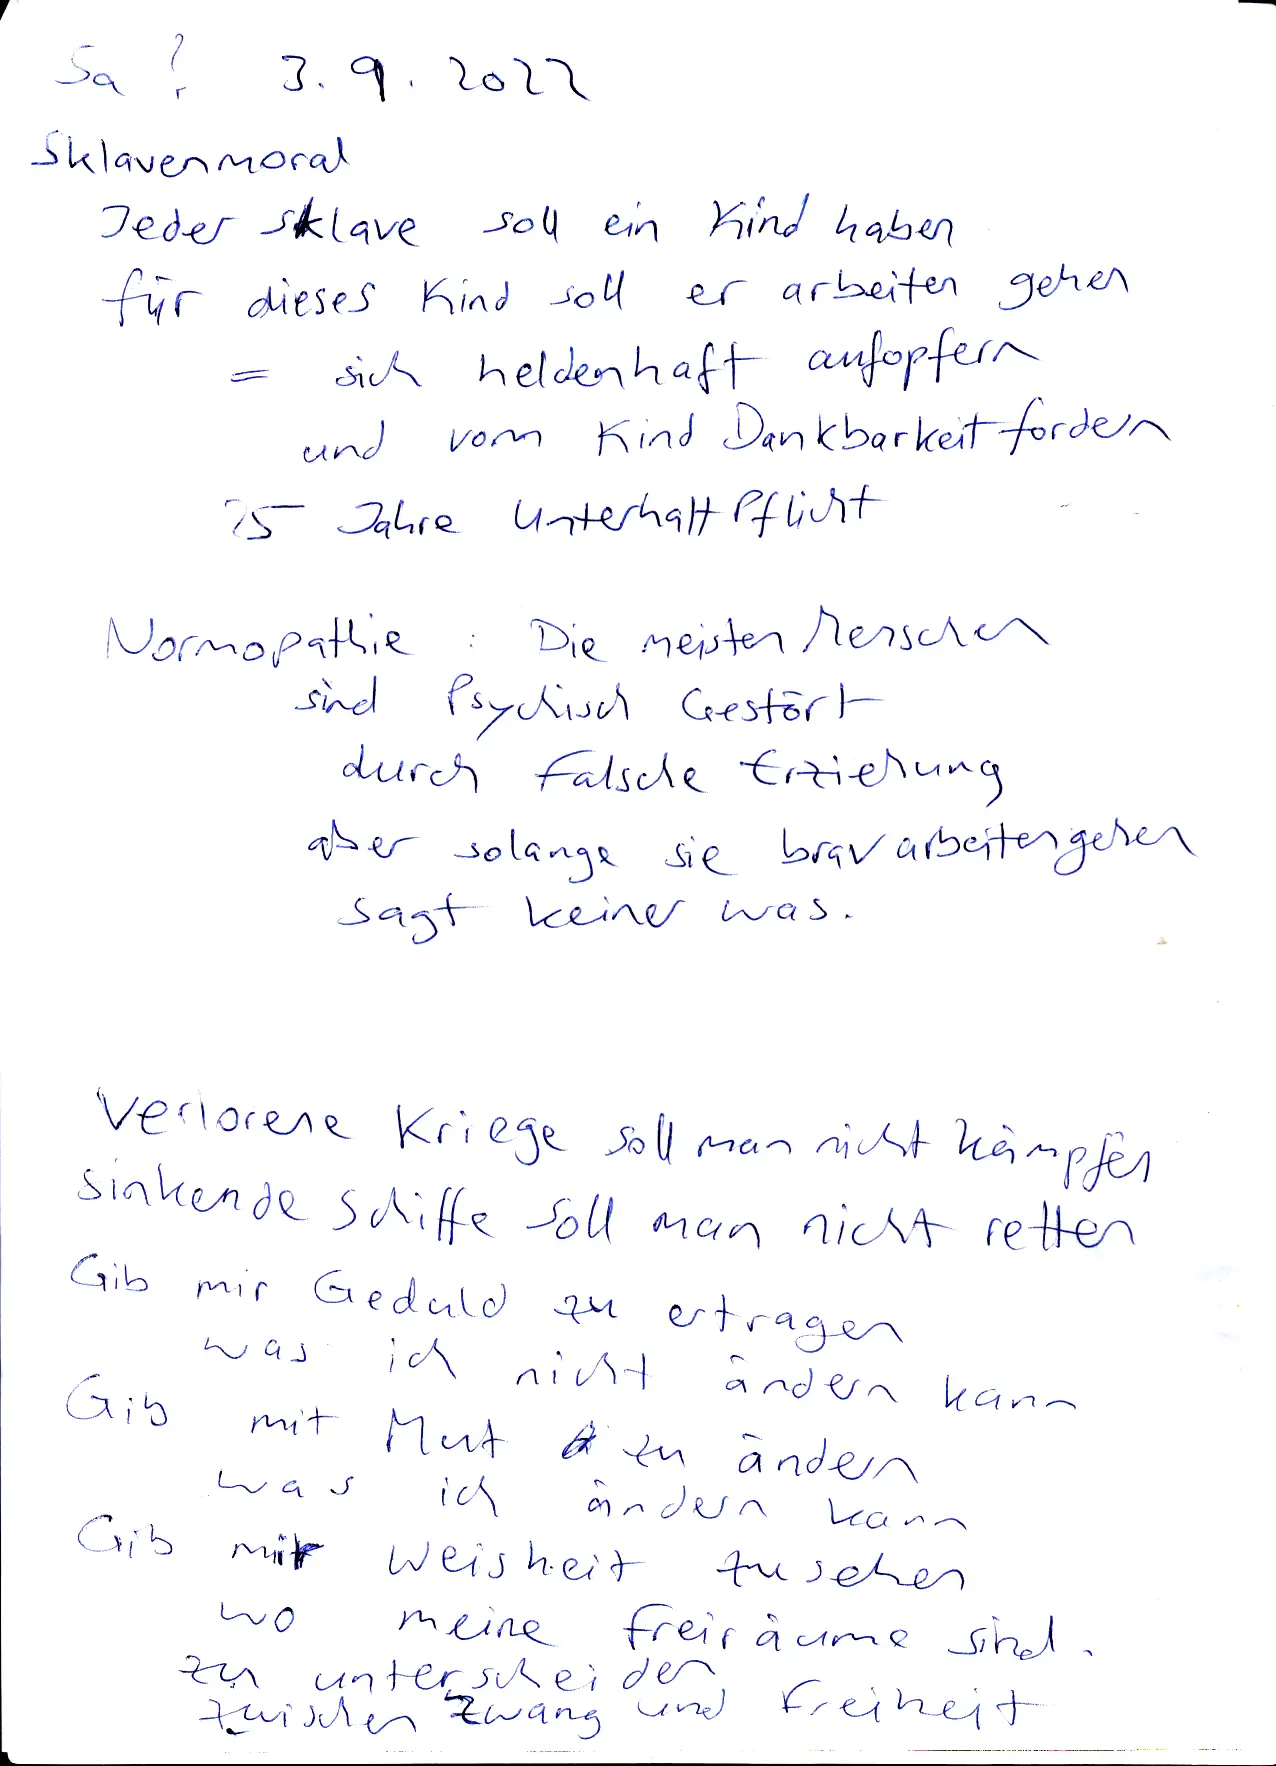 Sa ? 3.9.2022
Sklavenmoral
Jeder sklave soll ein Kind haben
für dieses Kind soll er arbeiten gehen
= sich heldenhaft aufopfern
und vom Kind Dankbarkeit fordern
25 Jahre Unterhalt Pflicht
Normopathie : Die meisten Menschen
sind Psychisch Gestört
durch Falsche Erziehung
aber solange sie brav arbeiten gehen
sagt keiner was.
Verlorene Kriege soll man nicht kämpfen
sinkende Schiffe soll man nicht retten
Gib mir Geduld zu ertragen
was ich nicht ändern kann
Gib mit Mut zu ändern
was ich ändern kann
Gib mir Weisheit zu sehen
wo meine Freiräume sind.
zu unterscheiden
zwischen Zwang und Freiheit